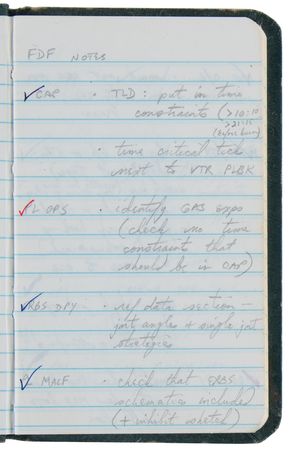 FDF NOTES
✓CAP · TLD: put in time
constraints (>10:10
>21:15
· time critical tick
next to VTR PLBK
✓L OPS · identify GAS expo
(check no time
constraints that
should be in CAP)
✓RBS DPY · ref data section –
jnt angles + single jnt
strategies
✓MALF · check that ERBS
schematics included
(+ inhibit sketch)